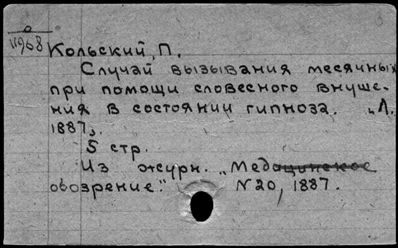 Кольский, П.
Случай вызывания месячных
при помощи словесного внуше-
ния в состоянии гипноза. „Л.
1887„.
5 стр.
Из журн. „Медицинское
обозрение." N20, 1887.